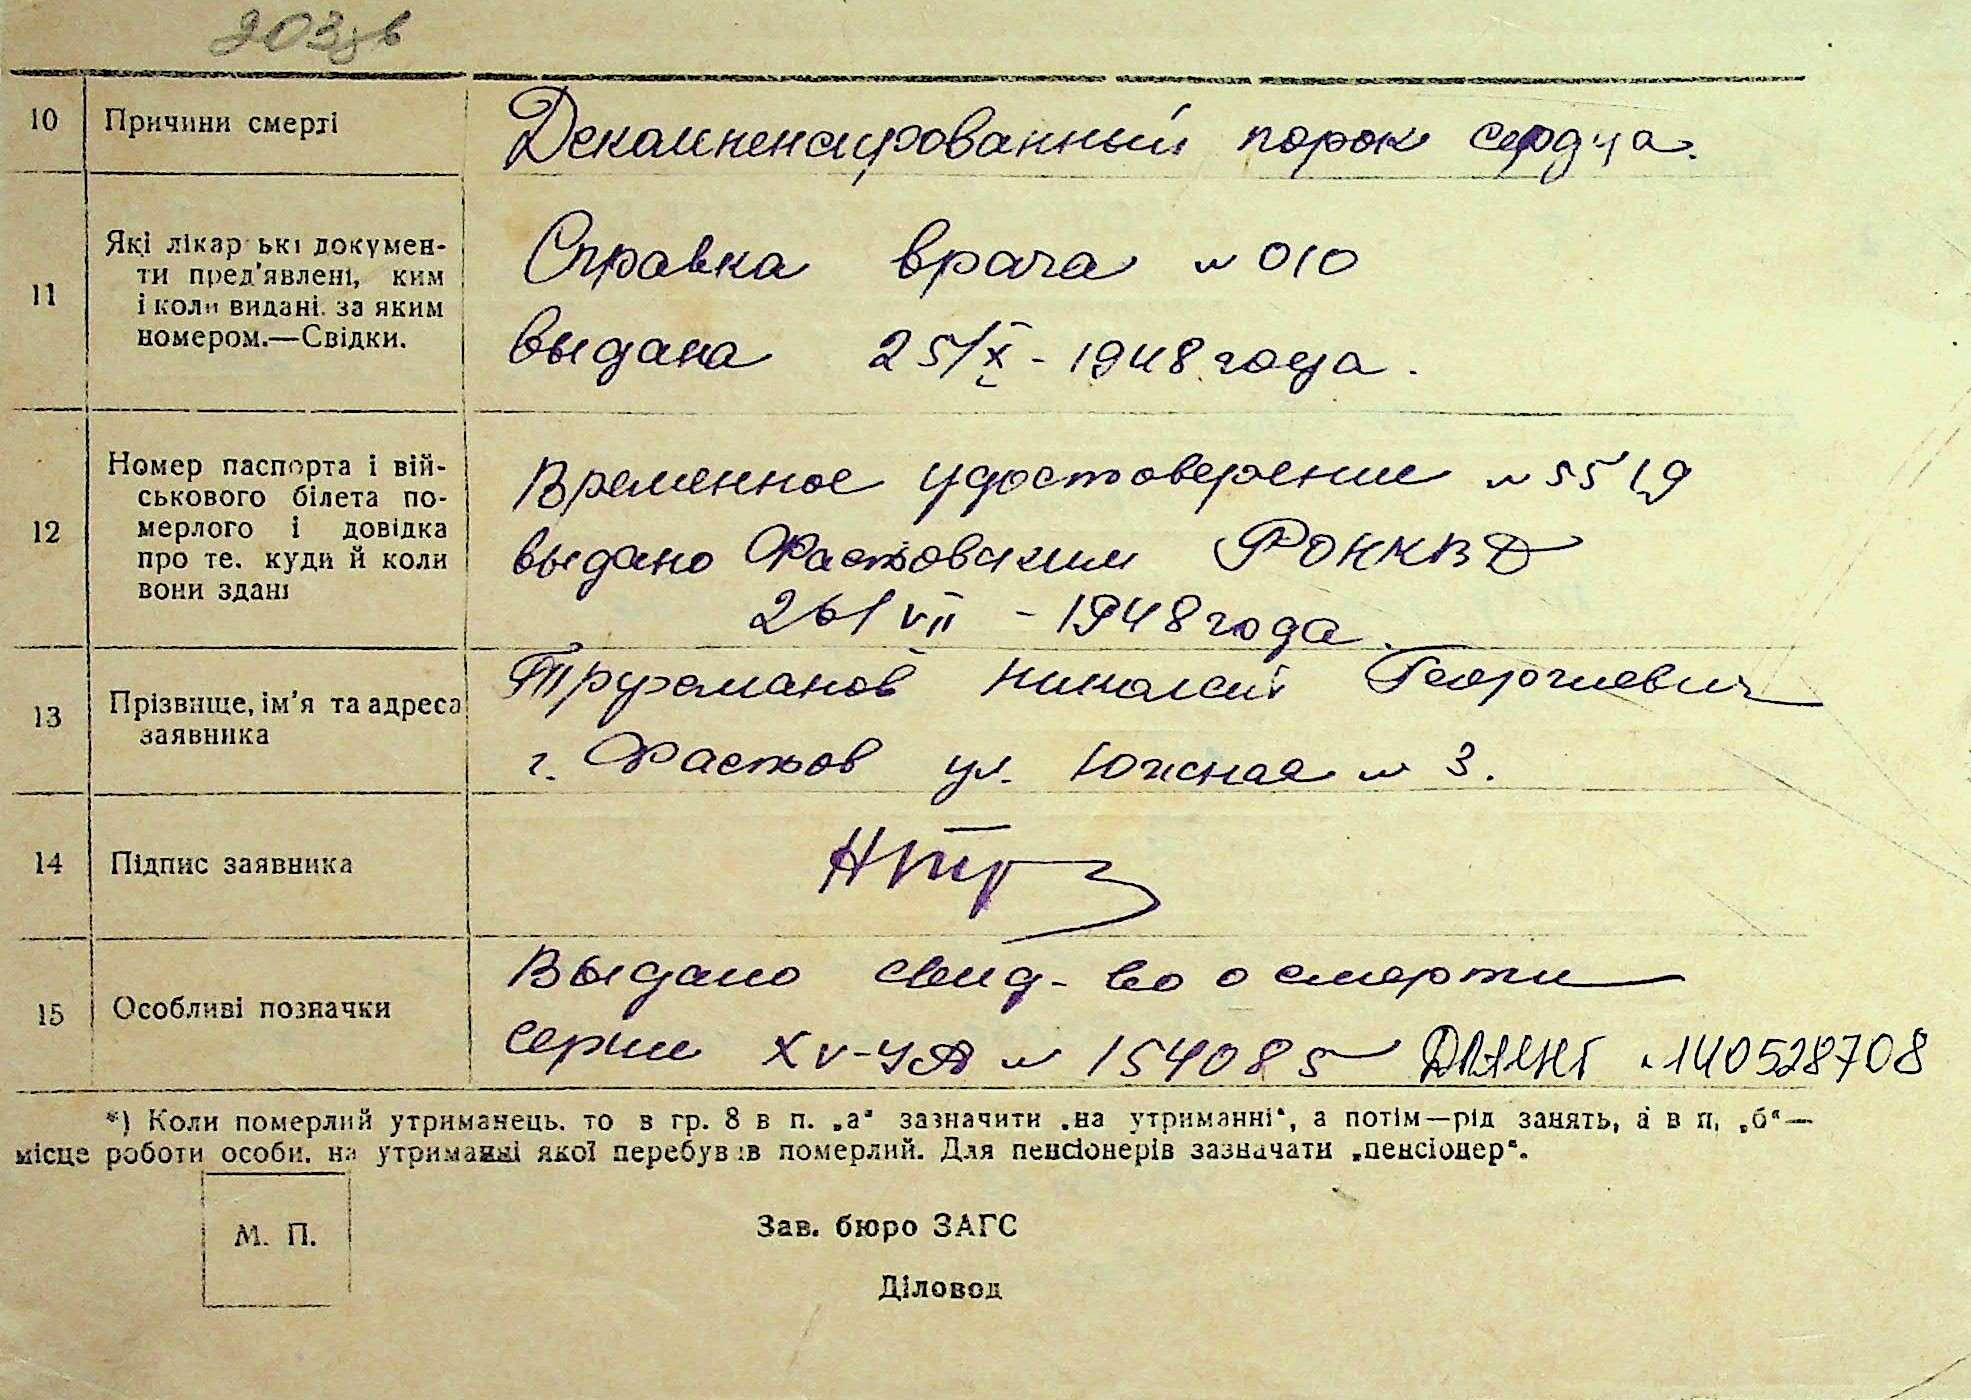 203зв
10 Причини смерті Декомпенсированный порок сердца.
11 Які лікарські документи пред'явлені, ким і коли видані. за яким номером.—Свідки.
Справка врача № 010
выдана 25/X - 1948 года.
12 Номер паспорта і військового білета померлого і довідка про те. куди й коли вони здані
Временное удостоверение № 5519
выдано Фастовским РОНКВД
26/VII - 1948 года.
13 Прізвище, ім'я та адреса заявника
Труфманов Николай Георгиевич
г. Фастов ул. Южная № 3.
14 Підпис заявника
15 Особливі позначки
Выдано свид-во о смерти
серии XV-УА № 154085 №140528708
*) Коли померлий утриманець. то в гр. 8 в п. „а“ зазначити „на утриманні“, а потім—рід занять, а в п, „б“—
місце роботи особи. на утриманні якої перебував померлий. Для пенсіонерів зазначати „пенсіонер“.
М. П.
Зав. бюро ЗАГС
Діловод